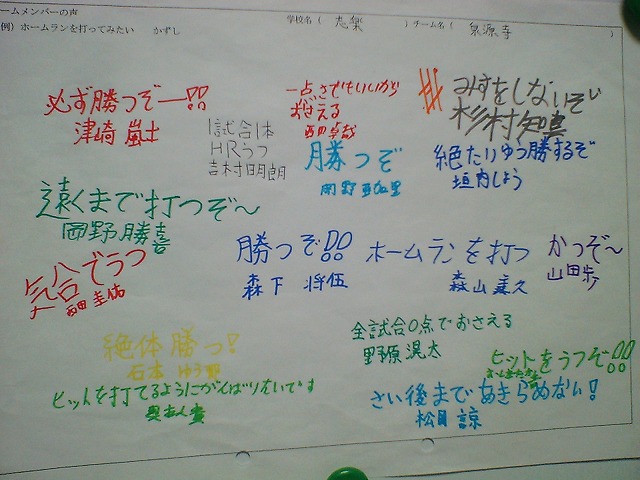 ームメンバーの声
例）ホームランを打ってみたい かずし
学校名（ 志楽 ）チーム名（ 泉源寺 ）
必ず勝つぞー!!
津崎 嵐士
1試合1本
HRうつ
吉村日明朗
一点さでもいいから
おさえる
西田卓哉
みすをしないぞい
杉村知真
勝つぞ
岡野
絶たりゆう勝するぞ
垣内しょう
遠くまで打つぞ～
岡野勝喜
気合でうつ
西田圭佑
勝つぞ!!
森下 将伍
ホームランを打つ
森山 義久
かつぞ～
山田歩
絶体勝つ!
石本 ゆう那
全試合0点でおさえる
野原滉太
ヒットをうつぞ!!
ヒットを打てるようにがんばりたいです
さい後まであきらめない!
松員 諒